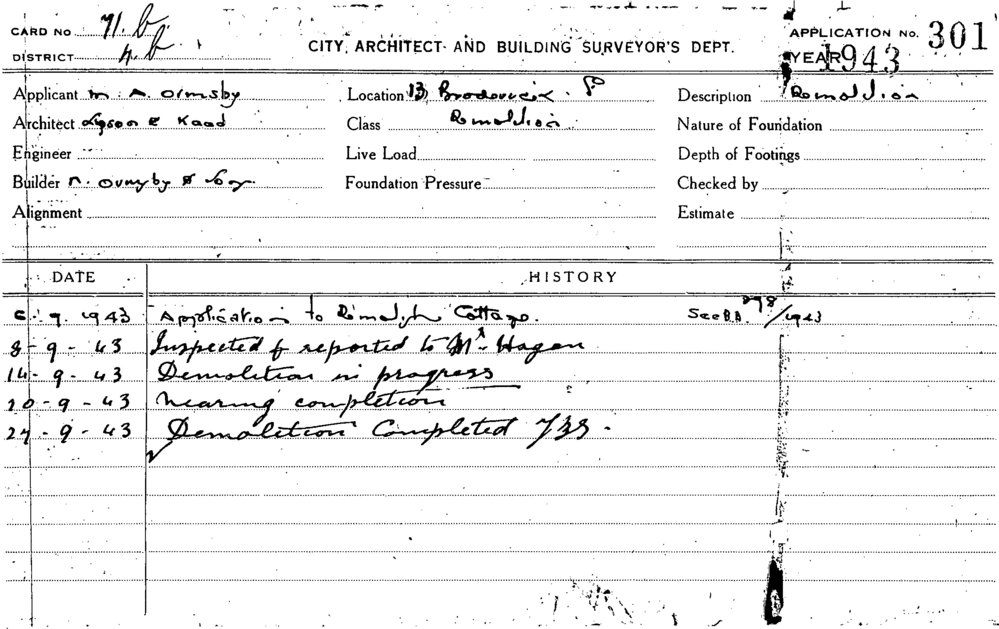 CARD NO 71.b
DISTRICT 4.b
CITY ARCHITECT AND BUILDING SURVEYOR'S DEPT.
APPLICATION NO. 301
YEAR 1943
Applicant M. A. Ormsby
Location 13, Broderick
Description Demolition
Architect & Kaad
Class Demolition
Nature of Foundation
Engineer
Live Load
Depth of Footings
Builder Ormsby &
Foundation Pressure
Checked by
Alignment
Estimate
DATE HISTORY
6. 9. 1943 Application to Demolish Cottage. See B.A. 298/1943
8-9-43 Inspected & reported to Mr Hagan
14-9-43 Demolition in progress
20-9-43 Nearing completion
27-9-43 Demolition Completed